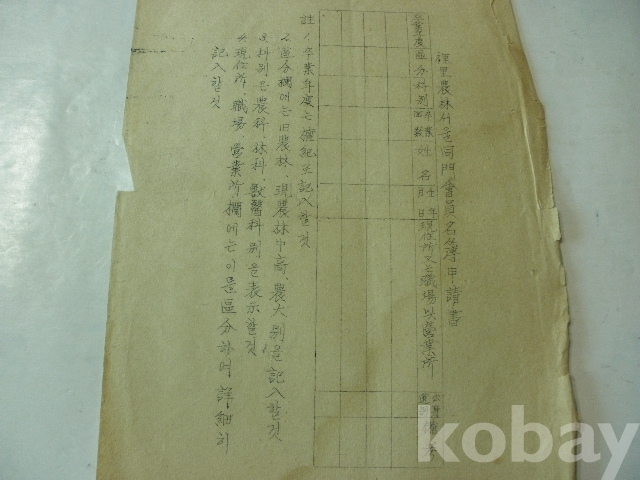 裡里農林서울同門會員名簿申請書
卒業年度 區分 科別 卒業回數 姓名 生年月日 現住所又는職場及營業所 備考
註 1. 卒業年度는檀紀로記入할것
2. 區分欄에는旧農林、現農林中高、農大別을記入할것
3. 科別은農科、林科、獸醫科別을表示할것
4. 現住所、職場、營業所欄에는이를區分하여詳細히
記入할것
kobay